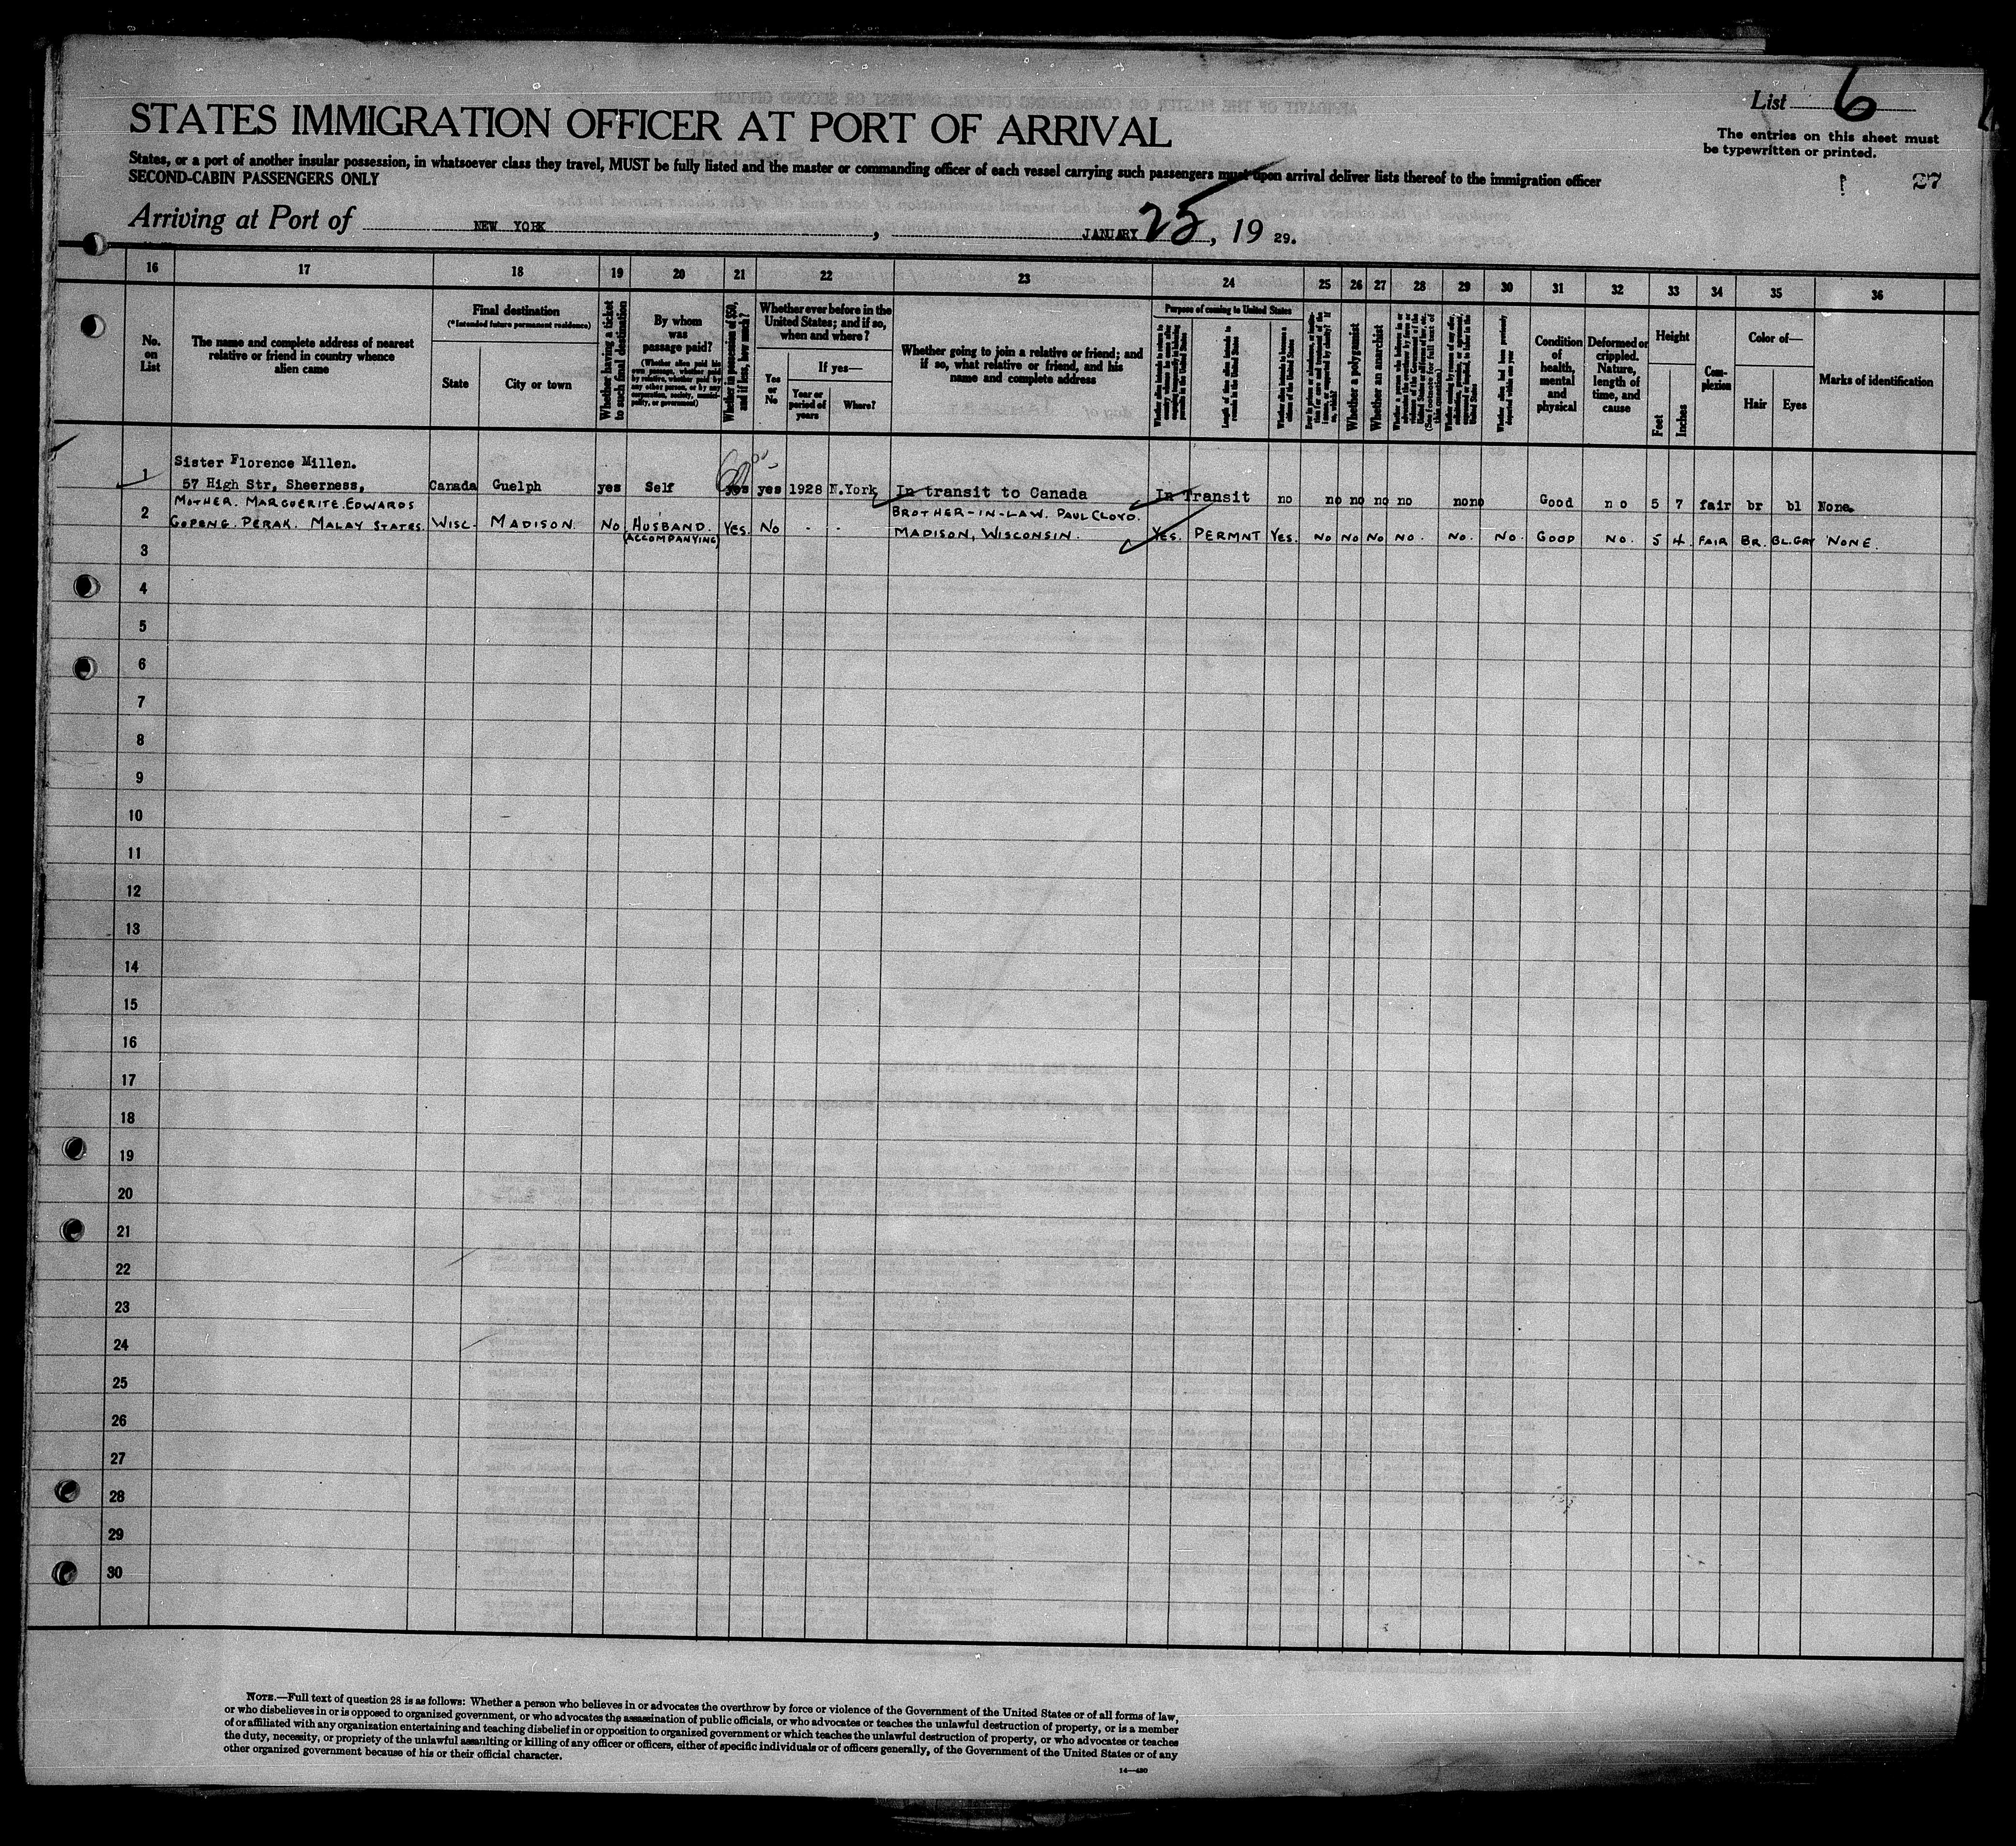 List 6
STATES IMMIGRATION OFFICER AT PORT OF ARRIVAL
The entries on this sheet must
be typewritten or printed.
States, or a port of another insular possession, in whatsoever class they travel, MUST be fully listed and the master or commanding officer of each vessel carrying such passengers must upon arrival deliver lists thereof to the immigration officer
SECOND-CABIN PASSENGERS ONLY
27
Arriving at Port of NEW YORK, JANUARY 25, 19 29.
16 17 18 19 20 21 22 23 24 25 26 27 28 29 30 31 32 33 34 35 36
No.
on
List
The name and complete address of nearest
relative or friend in country whence
alien came
Final destination
(*Intended future permanent residence)
State
City or town
Whether having a ticket
to such final destination
By whom
was
passage paid?
(Whether alien paid his
own passage, whether paid
by relative, whether paid by
any other person, or by any
corporation, society, munici-
pality, or government)
Whether in possession of $50,
and if less, how much?
Whether ever before in the
United States; and if so,
when and where?
Yes
or
No
If yes—
Year or
period of
years
Where?
Whether going to join a relative or friend; and
if so, what relative or friend, and his
name and complete address
Purpose of coming to United States
Length of time alien intends to
remain in the United States
Whether alien intends to become a
citizen of the United States
Whether a polygamist
Whether an anarchist
Whether alien had been previously
deported within one year
Condition
of
health,
mental
and
physical
Deformed or
crippled.
Nature,
length of
time, and
cause
Height
Feet
Inches
Com-
plexion
Color of—
Hair
Eyes
Marks of identification
1
Sister Florence Millen.
57 High Str, Sheerness, Canada Guelph yes Self yes yes 1928 N.York In transit to Canada In Transit no no no no no none Good no 5 7 fair br bl None.
2
MOTHER. MARGUERITE. EDWARDS BROTHER-IN-LAW. PAUL CLOYD.
GOPENG. PERAK. MALAY STATES. WISC. MADISON. NO. HUSBAND. YES. NO - - MADISON, WISCONSIN. YES. PERMNT YES. NO NO NO NO. NO. NO. GOOD NO. 5 4. FAIR BR. BL.GRY NONE.
(ACCOMPANYING)
3
4
5
6
7
8
9
10
11
12
13
14
15
16
17
18
19
20
21
22
23
24
25
26
27
28
29
30
NOTE.—Full text of question 28 is as follows: Whether a person who believes in or advocates the overthrow by force or violence of the Government of the United States or of all forms of law,
or who disbelieves in or is opposed to organized government, or who advocates the assassination of public officials, or who advocates or teaches the unlawful destruction of property, or is a member
of or affiliated with any organization entertaining and teaching disbelief in or opposition to organized government or which teaches the unlawful destruction of property, or who advocates or teaches
the duty, necessity, or propriety of the unlawful assaulting or killing of any officer or officers, either of specific individuals or of officers generally, of the Government of the United States or of any
other organized government because of his or their official character.
14—430